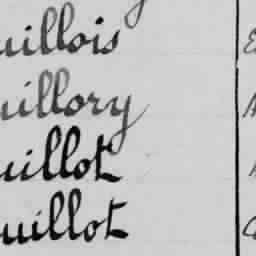 uillois
uillory
uillot
uillot